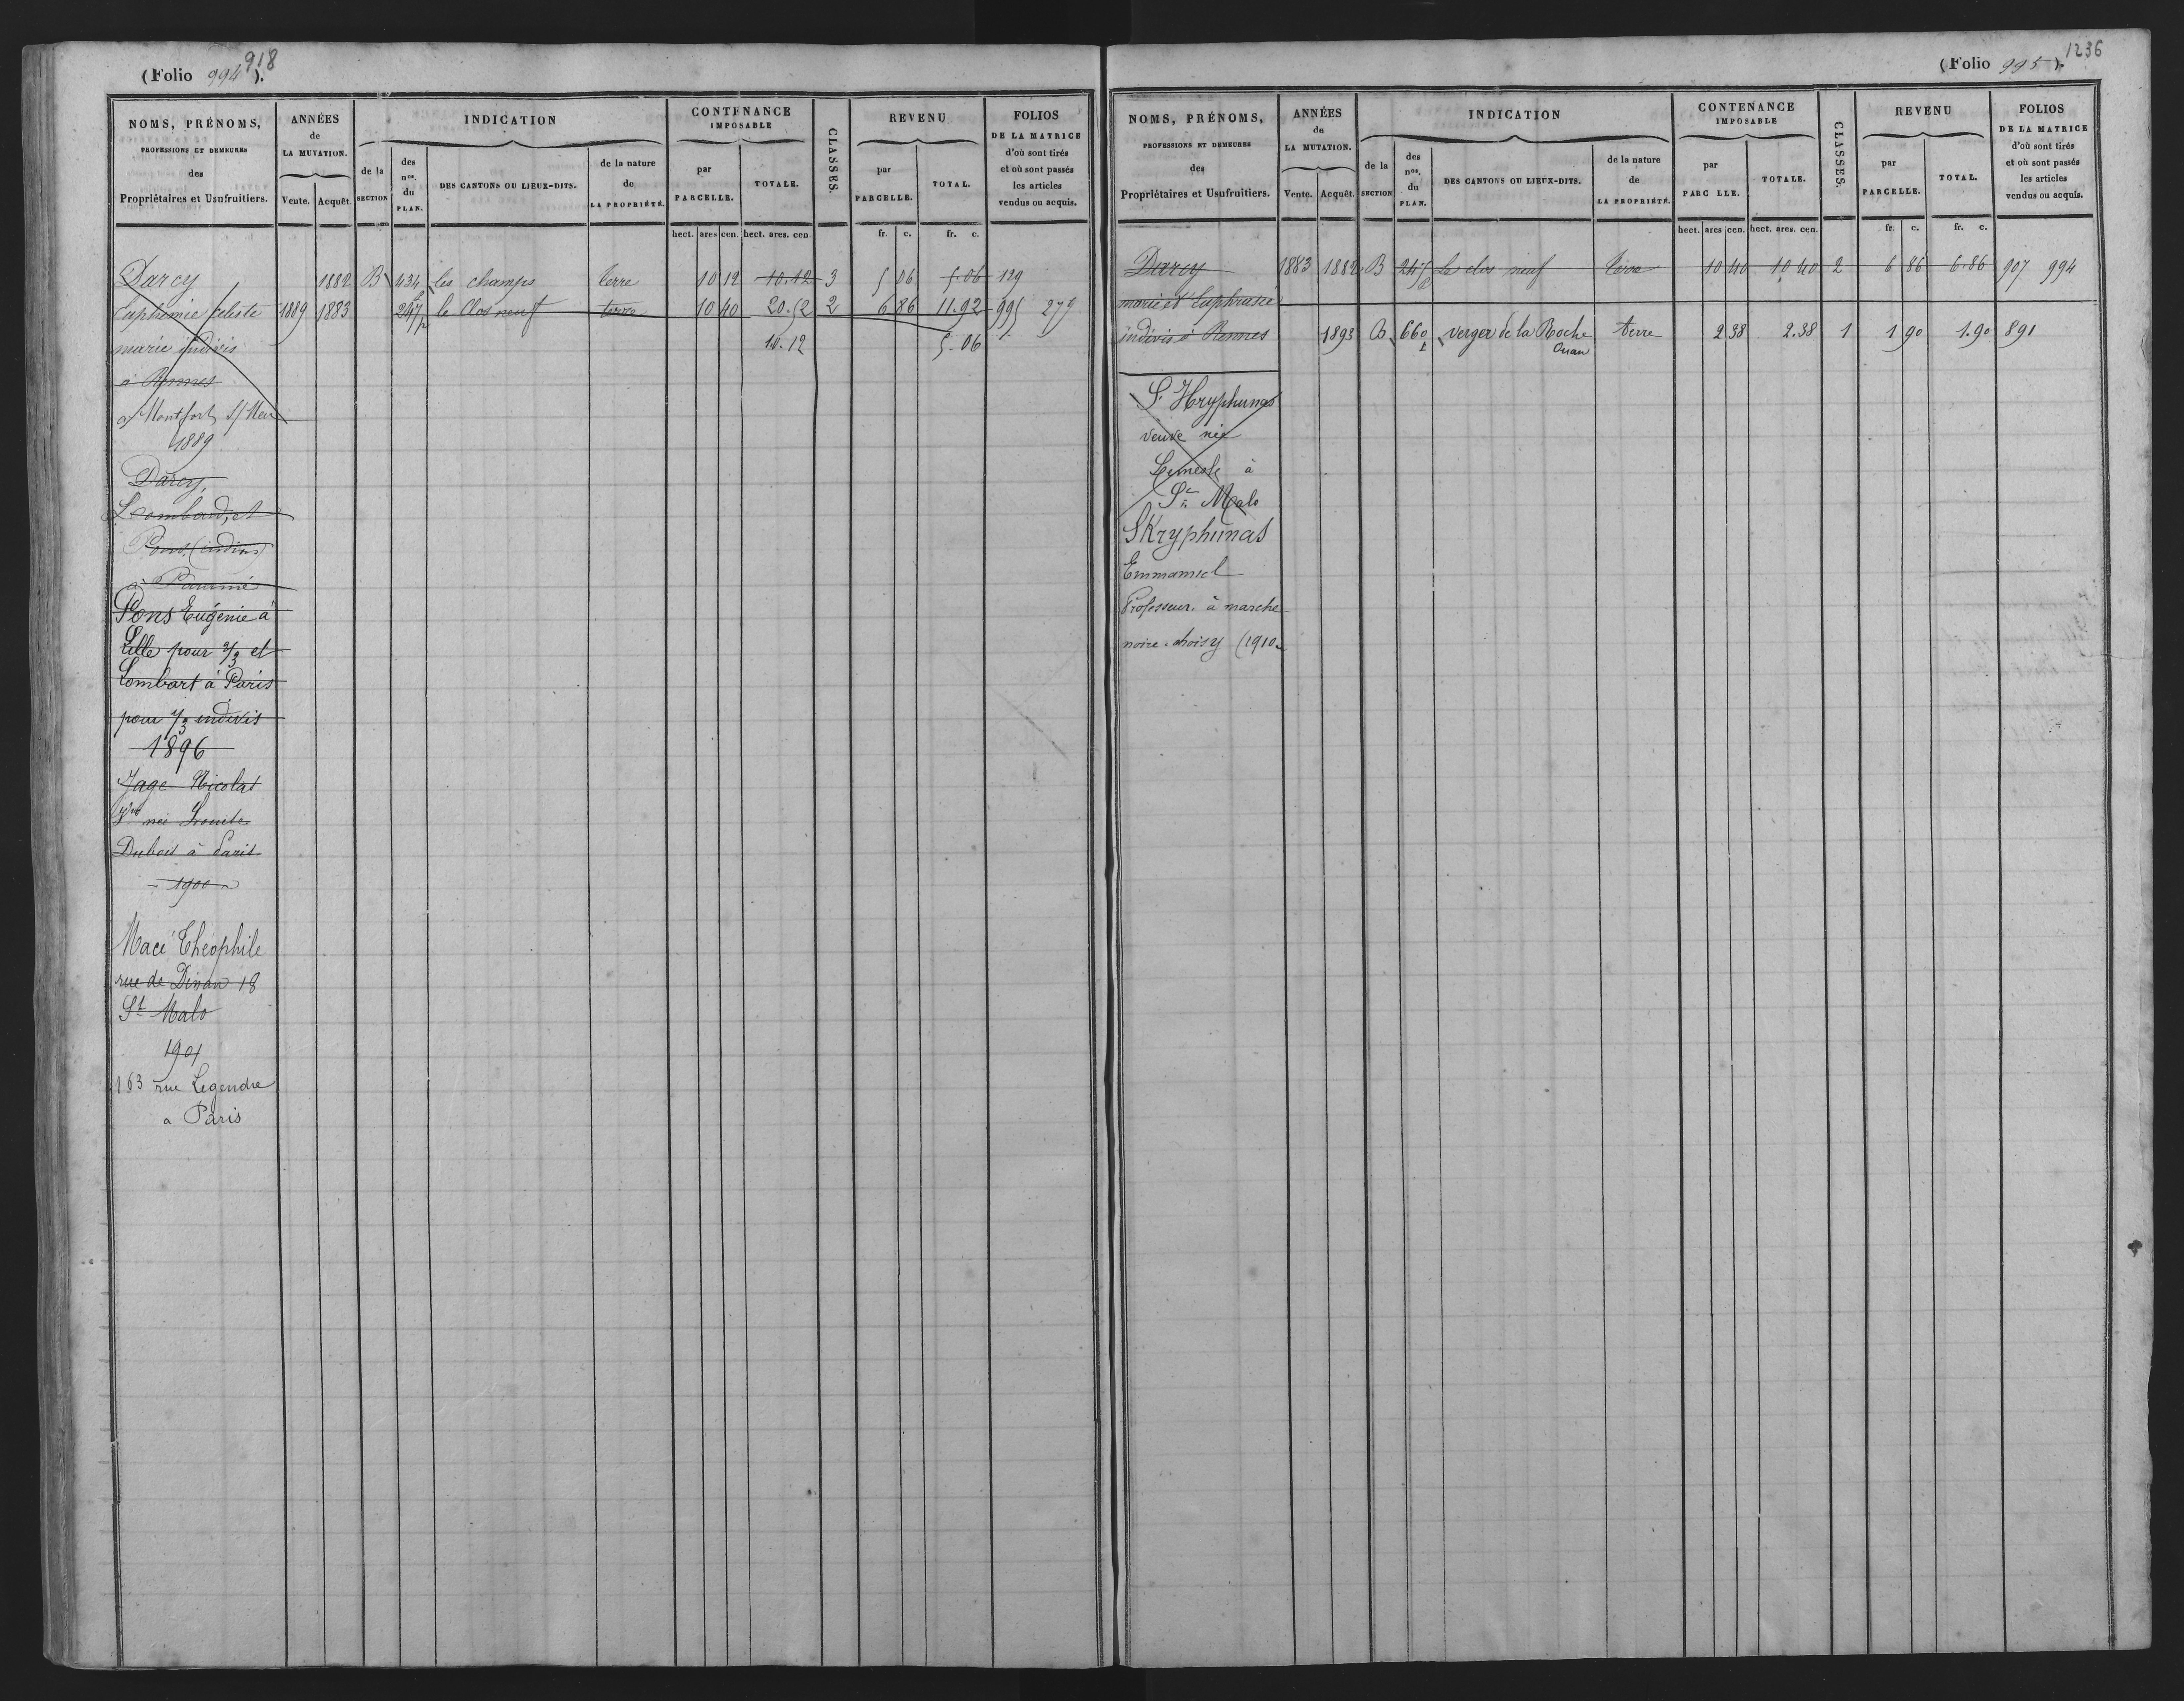 (Folio 994).
918
NOMS, PRÉNOMS,
PROFESSIONS ET DEMEURES
des
Propriétaires et Usufruitiers.
ANNÉES
de
LA MUTATION.
Vente. Acquêt.
INDICATION
de la
SECTION
des
nos.
du
PLAN.
DES CANTONS OU LIEUX-DITS.
de la nature
de
LA PROPRIÉTÉ.
CONTENANCE
IMPOSABLE
par
PARCELLE.
TOTALE.
CLASSES.
REVENU
par
PARCELLE.
TOTAL.
FOLIOS
DE LA MATRICE
d'où sont tirés
et où sont passés
les articles
vendus ou acquis.
hect. ares cen. hect. ares. cen. fr. c. fr. c.
Darcy 1882 B 434 les champs terre 10 12 10.12 3 5 06 5.06 129
Euphémie Céleste 1889 1883 247p le Clos neuf terre 10 40 20.52 2 6 86 11.92 995 275
marie indivis 10.12 5.06
à Rennes
à Montfort s/ Meu
1889
Darcy,
Lombard, et
Pons (indivis)
à Paramé
Pons Eugénie à
Lille pour 2/3 et
Lombart à Paris
pour 1/3 indivis
1896
Jage Nicolas
Vve née
Dubois à Paris
1900
Macé Théophile
rue de Dinan 18
St Malo
1901
163 rue Legendre
a Paris
(Folio 995).
1236
NOMS, PRÉNOMS,
PROFESSIONS ET DEMEURES
des
Propriétaires et Usufruitiers.
ANNÉES
de
LA MUTATION.
Vente. Acquêt.
INDICATION
de la
SECTION
des
nos.
du
PLAN.
DES CANTONS OU LIEUX-DITS.
de la nature
de
LA PROPRIÉTÉ.
CONTENANCE
IMPOSABLE
par
PARC LLE.
TOTALE.
CLASSES.
REVENU
par
PARCELLE.
TOTAL.
FOLIOS
DE LA MATRICE
d'où sont tirés
et où sont passés
les articles
vendus ou acquis.
hect. ares cen. hect. ares. cen. fr. c. fr. c.
Darcy 1883 1882 B 247 Le clos neuf terre 10 40 10 40 2 6 86 6.86 907 994
marie et Euphrasie
indivis à Rennes 1893 B 660 verger de la Roche terre 2 38 2.38 1 1 90 1.90 891
Ouan
S. Kryphunas
veuve née
Lemesle à
St Malo
SKryphunas
Emmanuel
Professeur à marche
noire choisy (1910